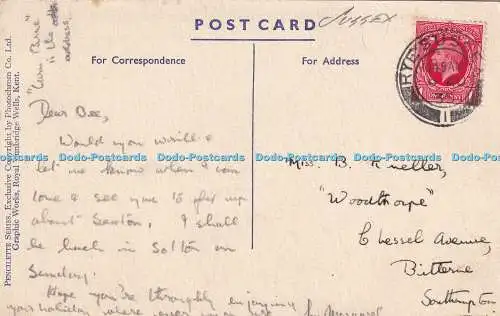 "Cura Cara"
is the
address.
SUSSEX
POST CARD
For Correspondence
For Address
RYDE
PENCILETTE SERIES, Exclusive Copyright by Photochrom Co. Ltd.
Graphic Works, Royal Tunbridge Wells, Kent.
Dear Bee,
Would you write &
let me know when I can
come & see you to fix up
about I shall
be back in Solton on
Sunday.
Hope you're throughly enjoying
your holiday where ever you are
Miss. B.
"Woodthorpe"
Chessel Avenue,
Bitterne
Southampton
Dodo-Postcards Dodo-Postcards Dodo-Postcards Dodo-Postcards Dodo-Postcards